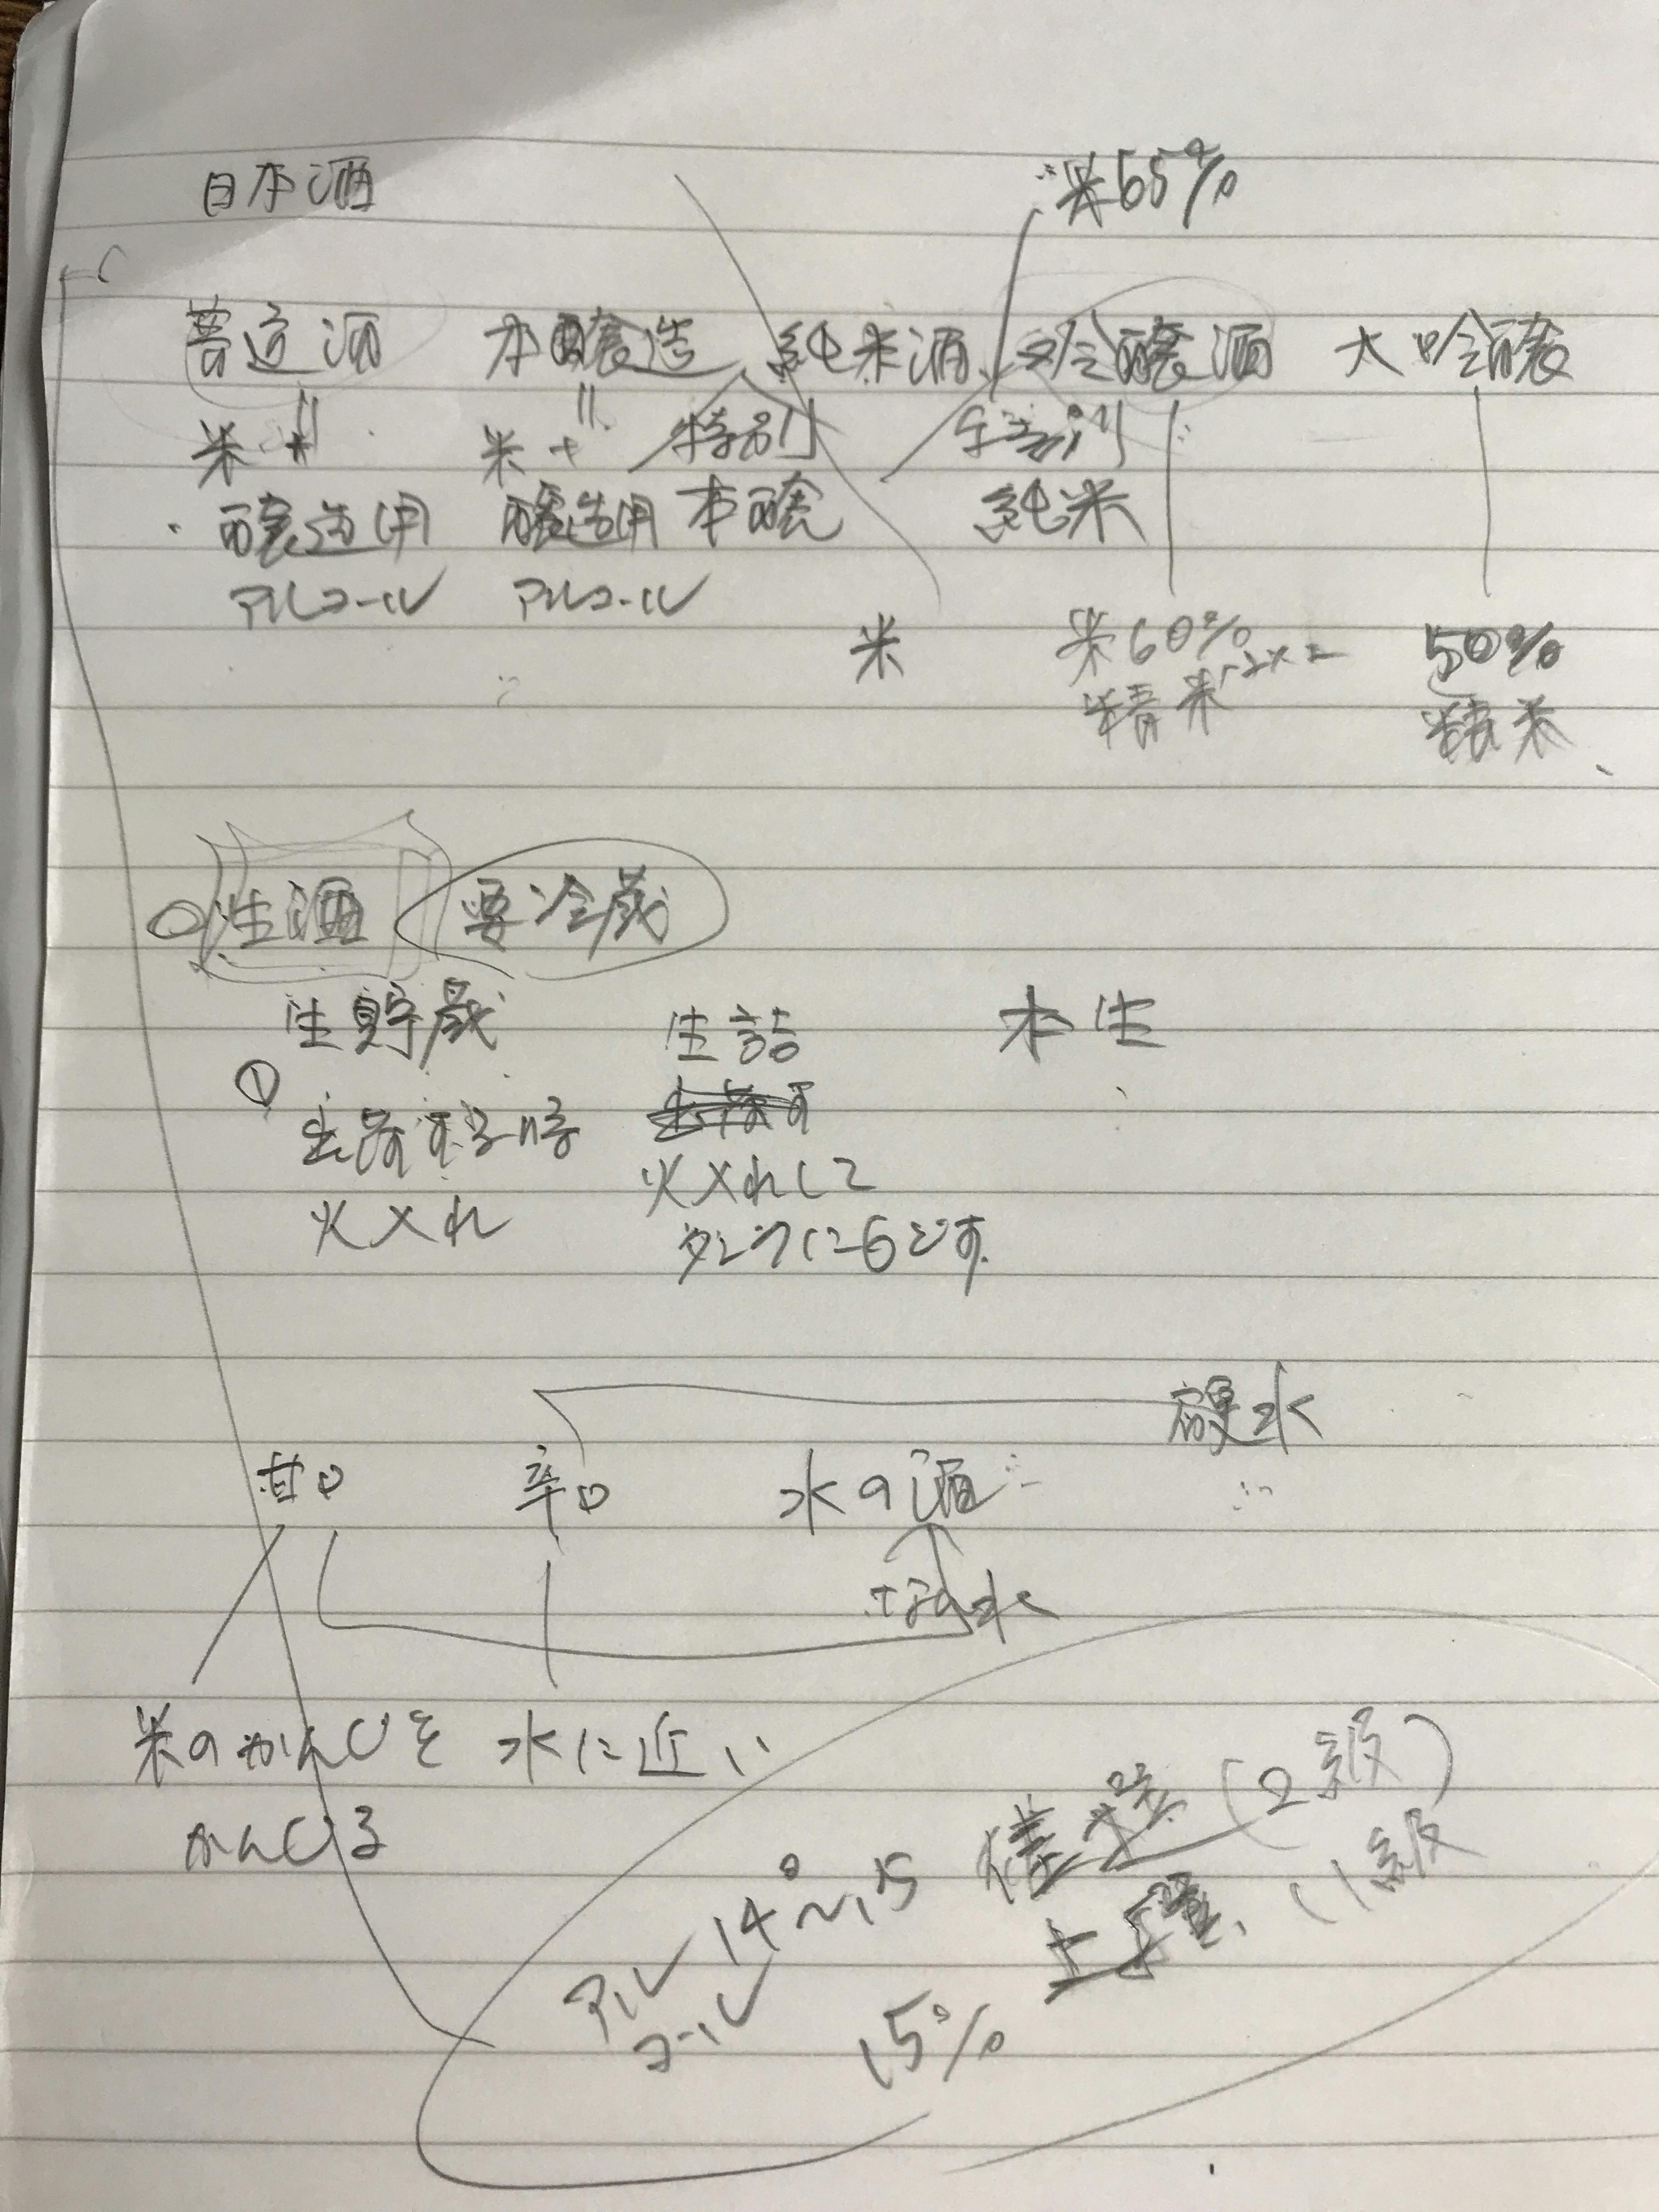 日本酒
米65%
普通酒 本醸造 純米酒 吟醸酒 大吟醸
米+ 米+ 特別 特別
醸造用 醸造用 本醸 純米
アルコール アルコール
米 米60% 50%
精米 精米
生酒 要冷蔵
生貯蔵 生詰 本生
①
出荷する時
火入れ 火入れして
タンクにもどす
硬水
甘口 辛口 水の酒
米のかんじを 水に近い
かんじる
佳撰(2級)
アルコール 14~15 上撰(1級
15%